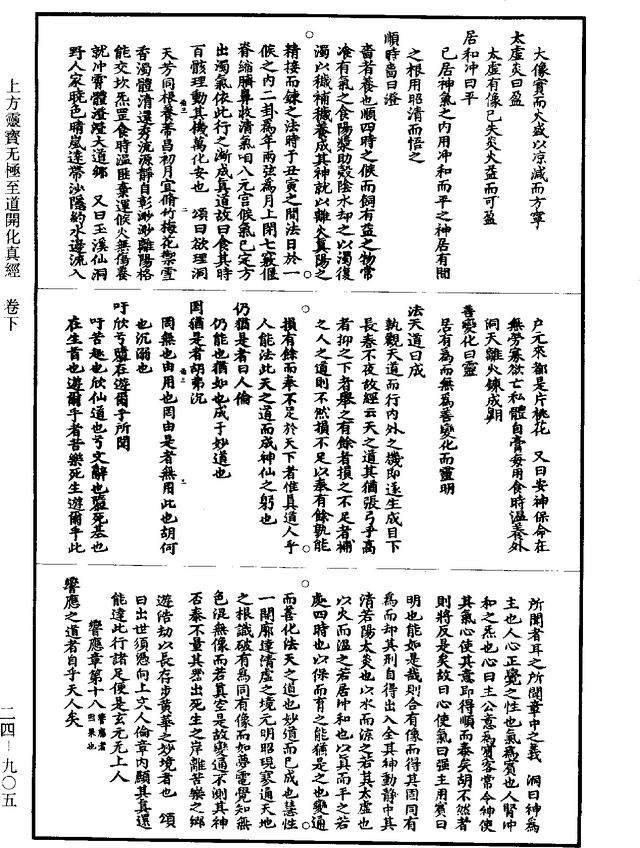 大像實而火盛以凉減而方寧
太虛炎曰盈
太虛有像已失炎火益而可盈
居和冲曰平
已居神氣之內用冲和而平之神居有間
之根用昭清而悟之
順時當曰澄
嗇者養也順四時之候而飼有益之物常
飡有氣之食陽漿助殼陰水却之以濁復
濁以穢補穢養成其神就以離火真陽之
精接而鍊之法時于丑寅之間法日於一
候之內二卦為年兩弦為月上閉七竅偃
脊縮臍鼻收清氣咽八元宫候氣已定方
出濁氣依此行之漸成真道故曰食其時
百骸理動其機萬化安也　頌曰欲理洞
天芳同根養蒂昌初月宜脩竹梅花禦雪
香濁體清還秀流源靜自彰渺渺離陽格
能交坎炁罡食時溫匪棄運候火無傷養
就冲霄體澄澄天道鄉　又曰玉溪仙洞
野人家晓色晴嵐達帶沙隱約水邊流入
户元來都是片桃花　又曰安神保命在
無勞寡欲亡私體自膏每用食時溫養外
洞天離火鍊成期
善變化曰靈
居有為而無為善變化而靈明
法天道曰成
執觀天道而行內外之機即遂生成目下
長春不夜故經云天之道其猶張弓乎高
者抑之下者舉之有餘者損之不足者補
之人之道則不然損不足以奉有餘孰能
損有餘而奉不足於天下者惟真道人乎
人能法此天之道而成神仙之躬也
仍猶是者曰人倫
仍能也猶如也成于妙道也
罔猶是者胡弗沉
罔無也由用也罔由是者無用此也胡何
也沉溺也
吁欣兮盬在遊爾乎所聞
吁苦趣也欣仙道也兮文辭也盬死基也
在生首也遊爾乎者苦樂死生遊爾乎此
所聞者耳之所聞章中之義　洞曰神為
主也人心正覺之性也氣為賓也人腎冲
和之炁也心曰主公意為賓客常令神使
其氣心使其意即得順而泰矣胡不然者
則將反是矣故曰心使氣曰强主用賓曰
明也能如是哉則合有像而得其固同有
為而却其刑自得出入全其神動静中其
清若陽太炎也以水而涼之若其太虛也
以火而溫之若居冲和也以真而平之若
處四時也以保而育之能猶是之也變通
而善化法天之道也妙道而已成也慧性
一開廓達清虛之境元明昭現寥通天地
之根識破有為同有像而如夢電覺知無
色混無像而若真空是故變通不測其神
否泰不量其㬅出死生之岸離苦樂之鄉
遊浩劫以長存步黃華之妙境者也　頌
曰出世須憑向上文人倫章內顯其真還
能達此行諸足便是玄元无上人
響應章第十八響應者因果也
響應之道者自乎天人矣
上方靈寶无極至道開化真經　卷下
二四－九〇五